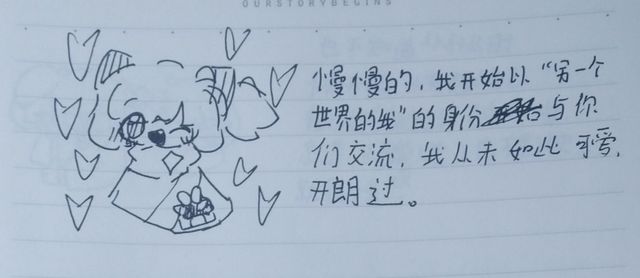 OURSTORYBEGINS
慢慢的，我开始以“另一个
世界的我”的身份与你
们交流，我从未如此可爱，
开朗过。